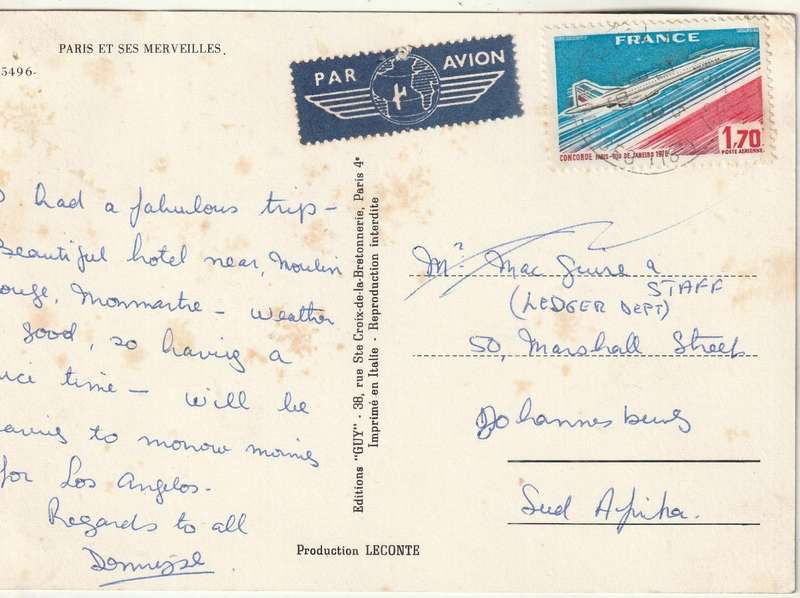 PARIS ET SES MERVEILLES
5496-
PAR AVION
FRANCE
1,70
POSTE AERIENNE
CONCORDE PARIS-RIO DE JANEIRO 1976
had a fabulous trip -
Beautiful hotel near, Moulin
ouge, Monmartre - weather
good, so having a
time - will be
to morrow
for Los Angelos.
Regards to all
Editions "GUY" - 38, rue Ste Croix-de-la-Bretonnerie, Paris 4e
Imprimé en Italie - Reproduction interdite
Mr. Mac Guire &
STAFF
(LEDGER DEPT)
50, Marshall Street
Johannesburg
Sud Afrika.
Production LECONTE